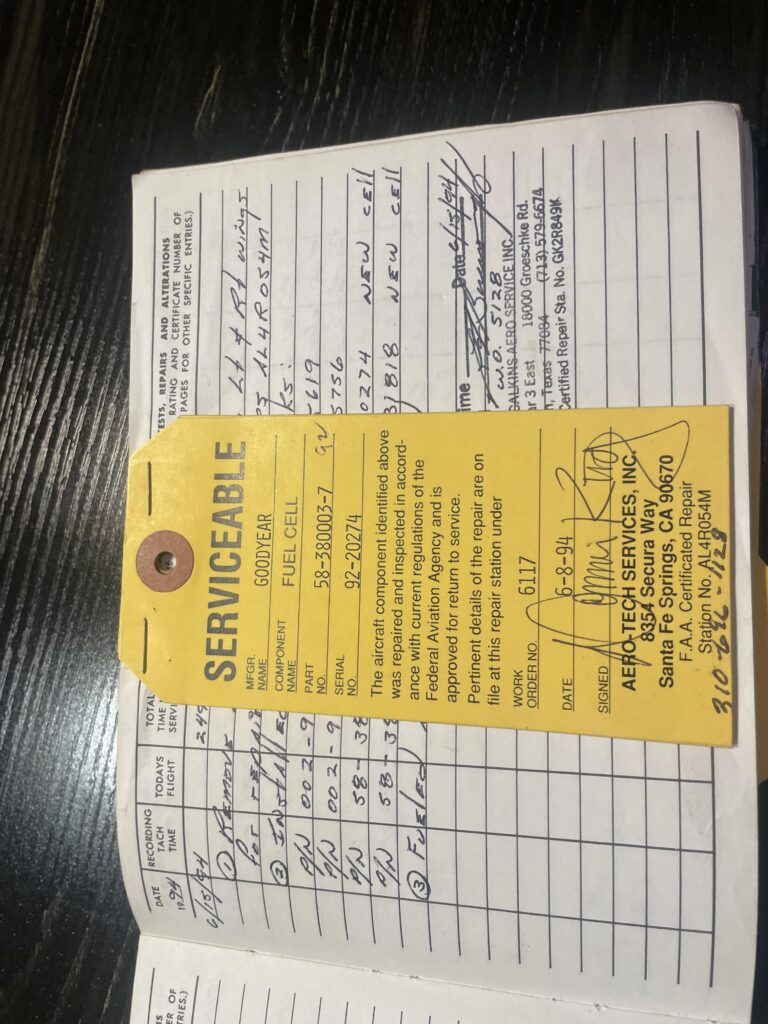 ESTS, REPAIRS AND ALTERATIONS
RATING AND CERTIFICATE NUMBER OF
PAGES FOR OTHER SPECIFIC ENTRIES.)
DATE
1994
RECORDING
TACH
TIME
TODAYS
FLIGHT
TOTAL
TIME
SERV
6/15/94
① Remove Lt & Rt wings
for repair AL4R054M
② Installed
P/N 002-9 5619
P/N 002-9 5756
P/N 58-38 0274 NEW CELL
P/N 58-38 818 NEW CELL
③ Fueled
Date 6/15/94
W.O. 5128
CALKINS AERO SERVICE INC.
ar 3 East 18000 Groeschke Rd.
n, Texas 77084 (713) 579-6674
Certified Repair Sta. No. GK2R849K
SERVICEABLE
MFGR. NAME GOODYEAR
COMPONENT NAME FUEL CELL
PART NO. 58-380003-7 92
SERIAL NO. 92-20274
The aircraft component identified above
was repaired and inspected in accord-
ance with current regulations of the
Federal Aviation Agency and is
approved for return to service.
Pertinent details of the repair are on
file at this repair station under
WORK ORDER NO. 6117
DATE 6-8-94
SIGNED
AERO-TECH SERVICES, INC.
8354 Secura Way
Santa Fe Springs, CA 90670
F.A.A. Certificated Repair
Station No. AL4R054M
RIES.)